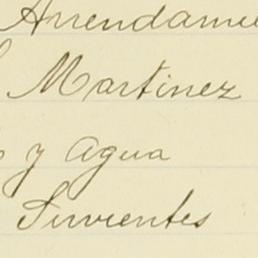 Arrendamie
Martinez
y agua
Sirvientes